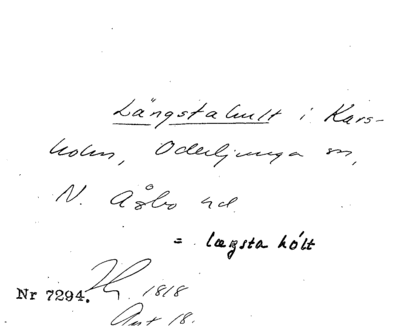 Långstahult i Kars-
holm, Oderljunga sn,
N. Åsbo hd.
= længsta hólt
Nr 7294. 1818
Art 18.